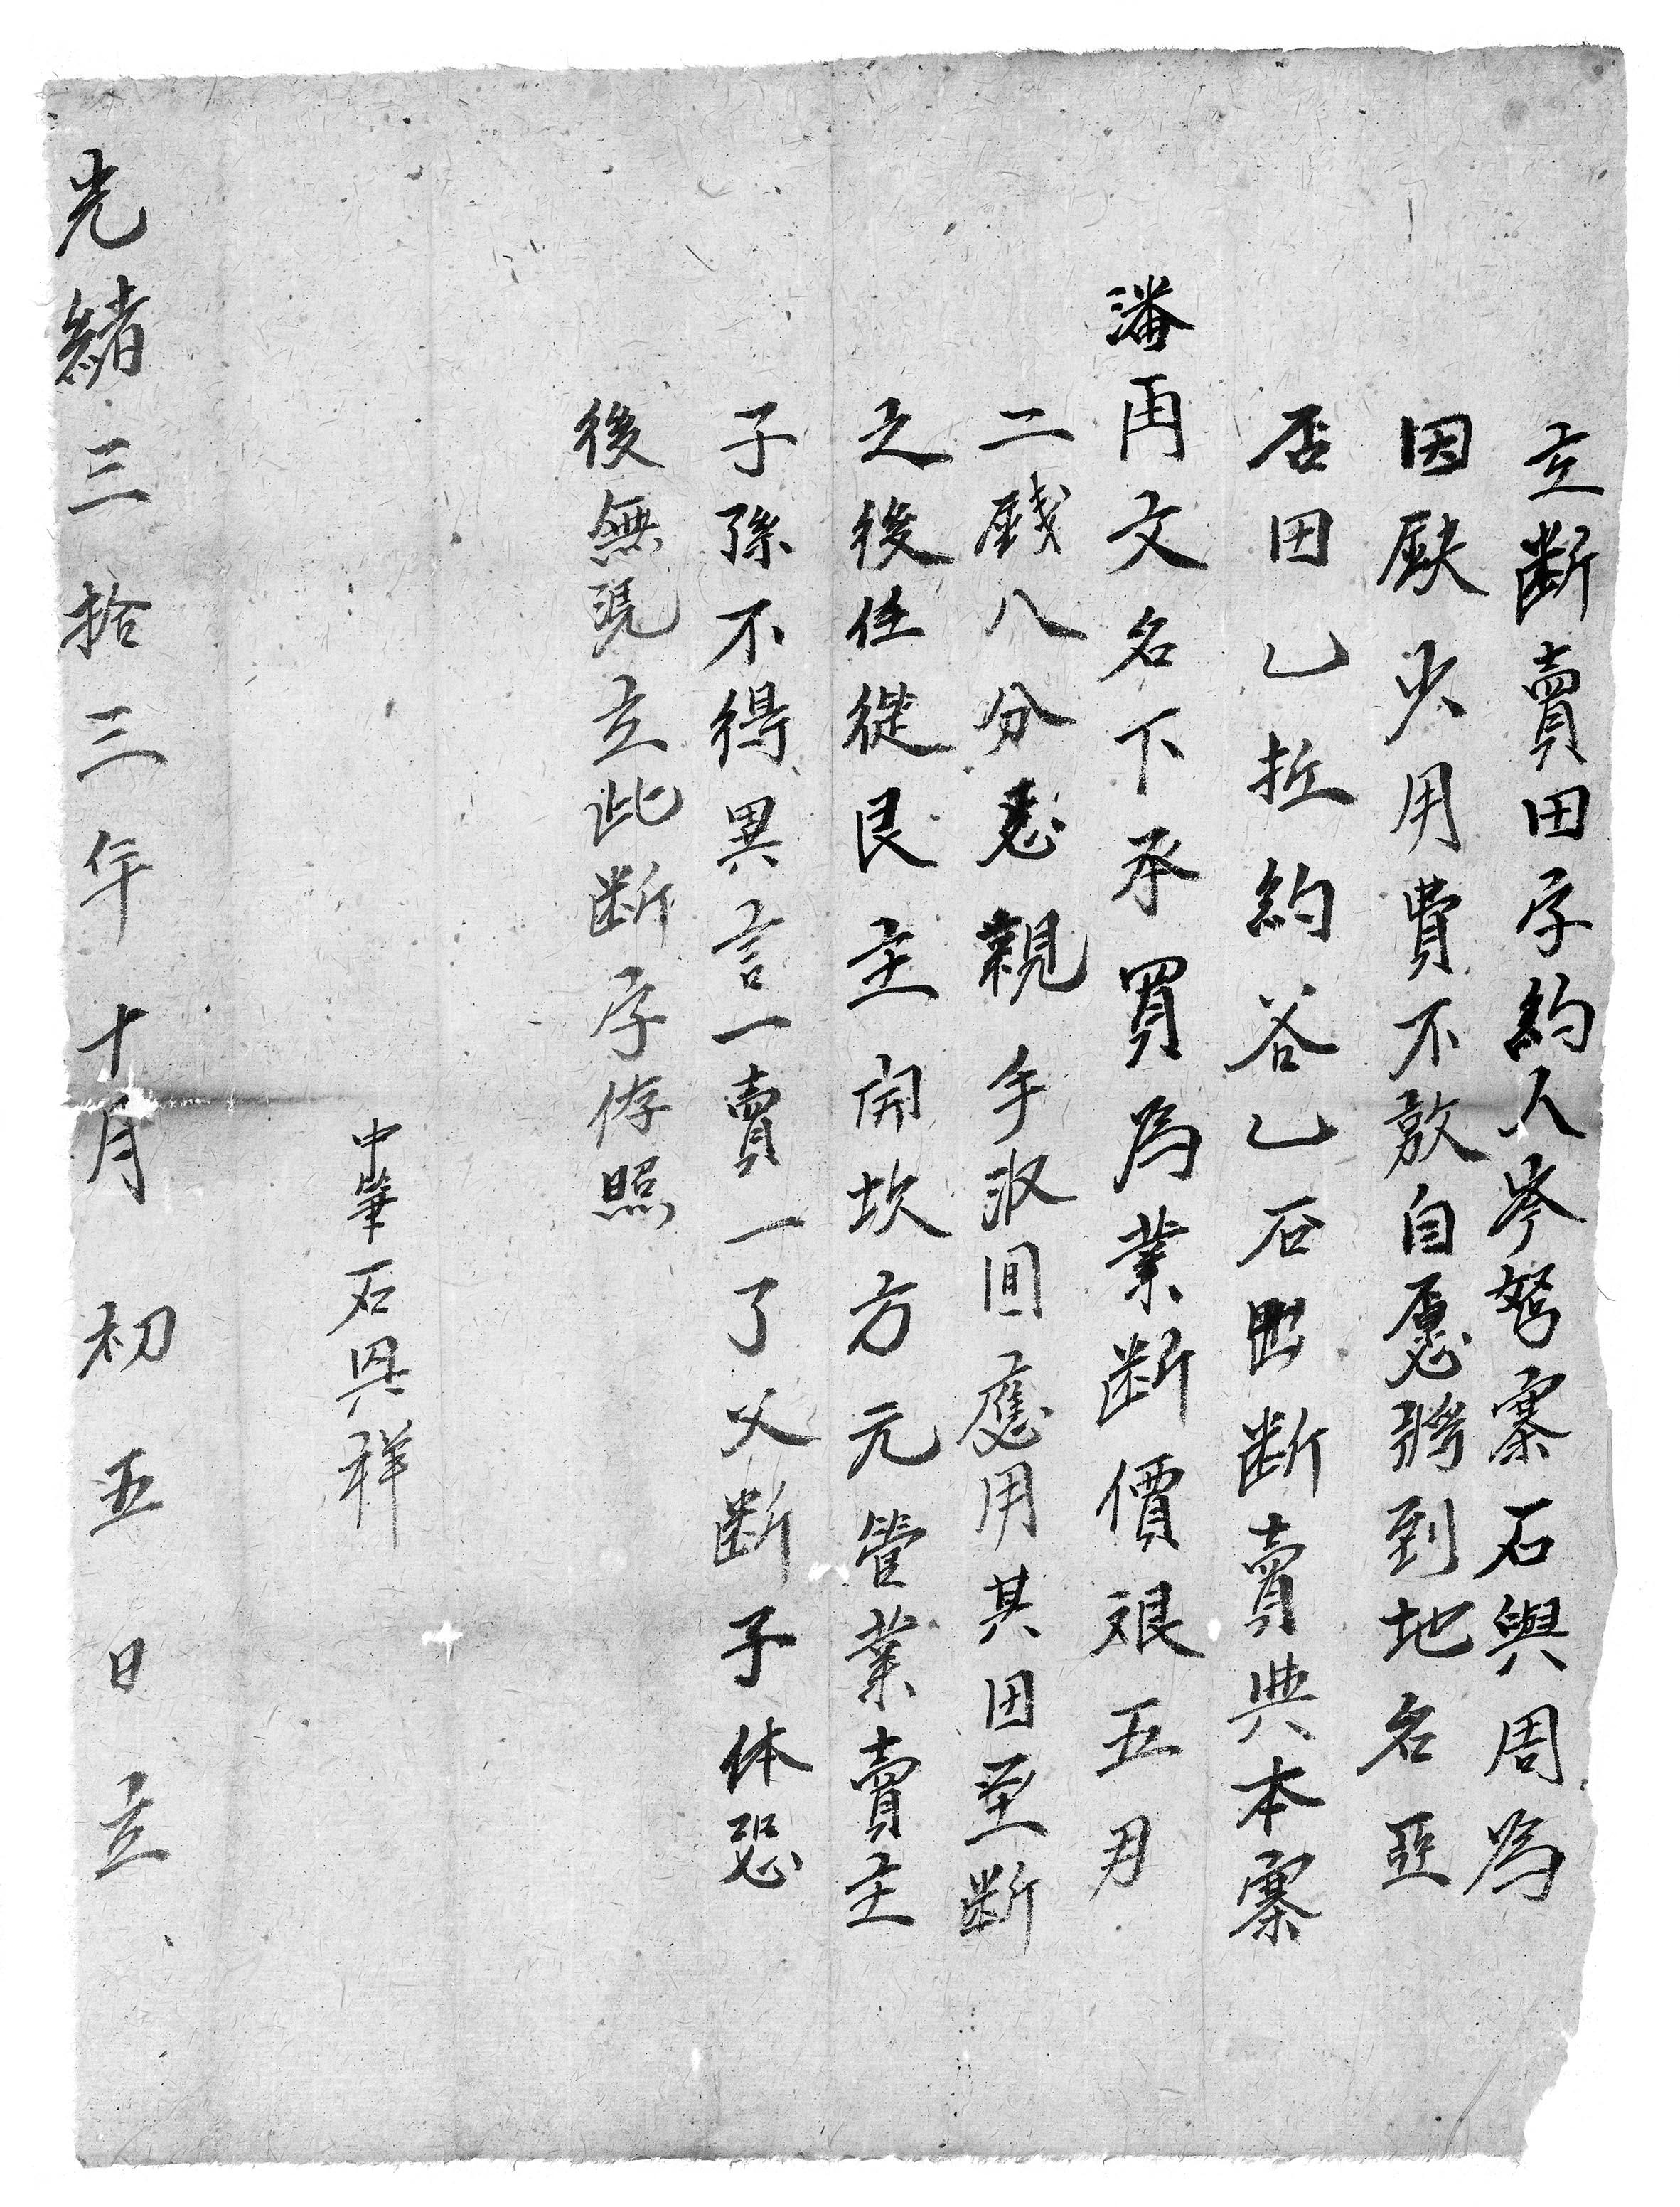 立断賣田字約人岑努寨石興周為
因缺少用費不敷自愿將到地名亞
否田乙坵約谷乙石出断賣典本寨
潘再文名下承買為業断價艮五月
二錢八分悉親手收囬應用其田至断
之後任從艮主開坎方元管業賣主
子孫不得異言一賣一了父断子休恐
後無凭立此断字存照
中筆石興祥
光緒三拾三年十月初五日立